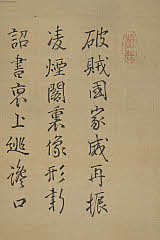 破賊國家威再振
凌煙閣裏像形新
詔書裏上巡讒口